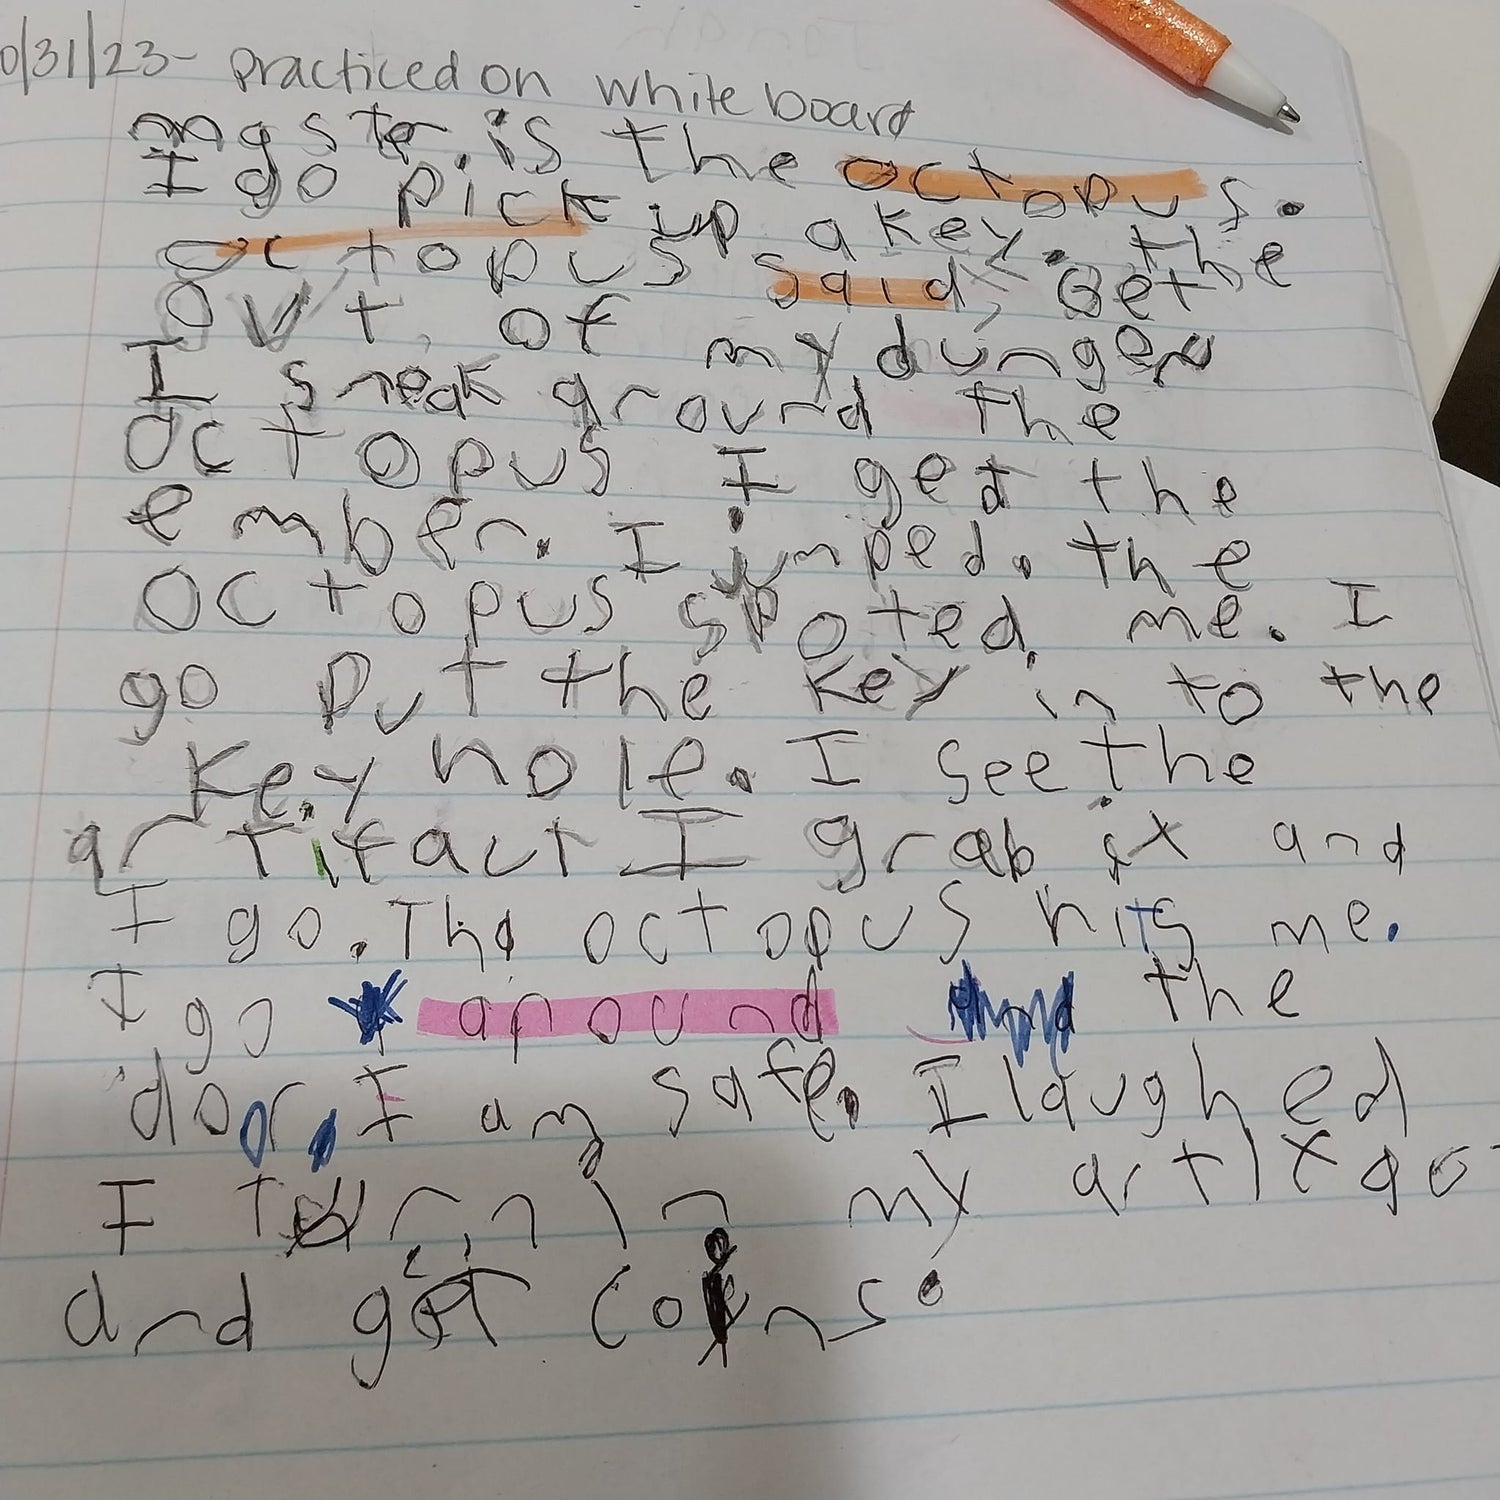 0/31/23- practiced on white board
is the octopus.
I go pick up a key. the
octopus said, Get
out of my dungen
I sneak around the
octopus I get the
ember. I jumped. the
octopus spoted me. I
go put the key in to the
key hole. I see the
artifact I grab it and
I go. The octopus hits me.
I go around the
door. I am safe. I laughed
I turn in my
and get coins.